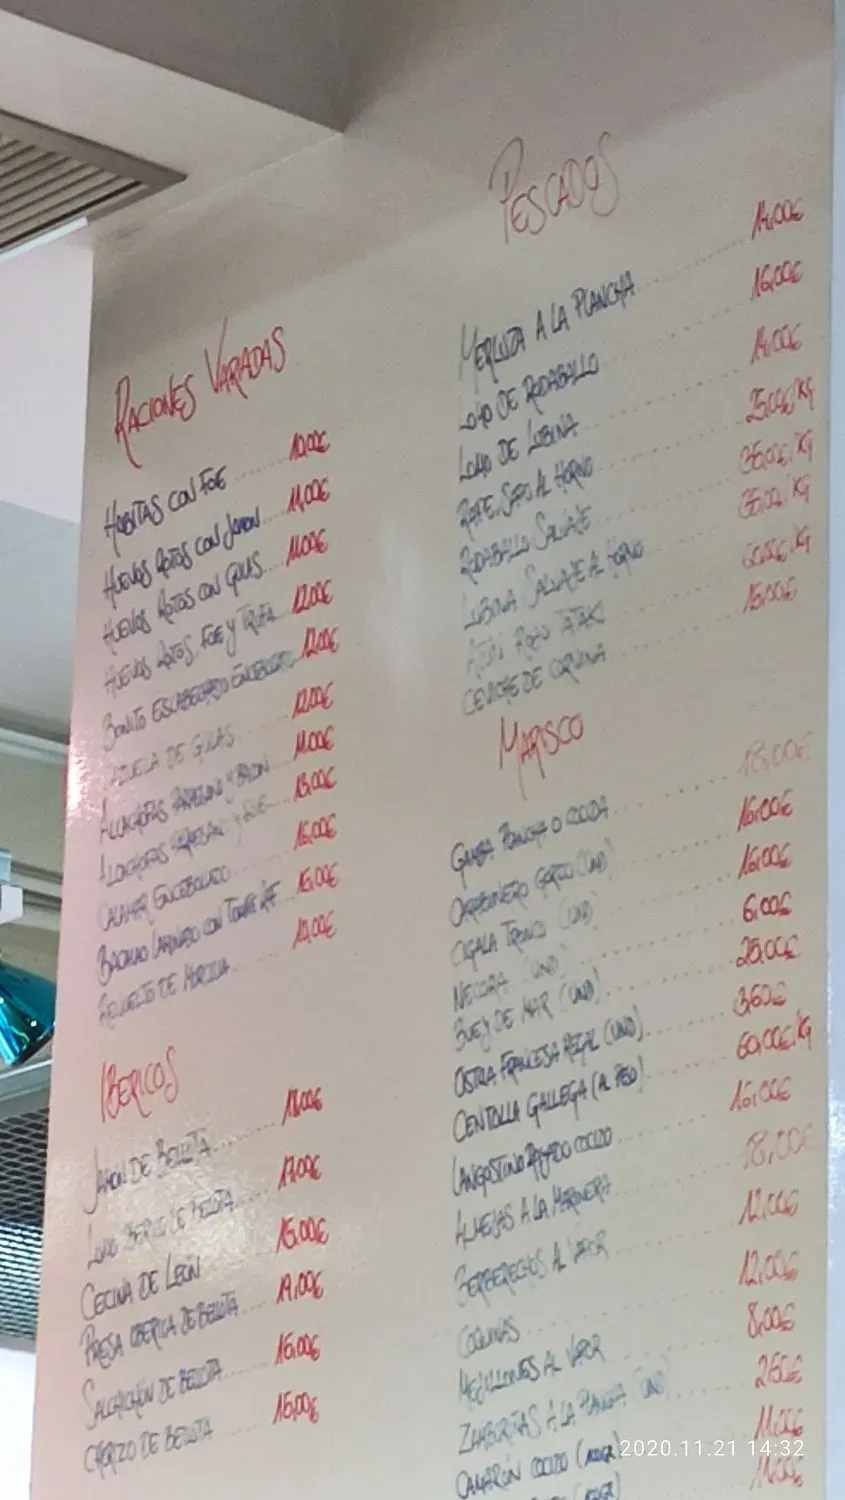 RACIONES VARIADAS
HABITAS CON FOE 10,00€
HUEVOS ROTOS CON JAMON 11,00€
HUEVOS ROTOS CON GULAS 11,00€
HUEVOS ROTOS, FOE Y TRUFA 12,00€
BONITO ESCABECHADO ENCEBOLLADO 12,00€
CAZUELA DE GULAS 12,00€
ALCACHOFAS PARMESANO Y JAMON 11,00€
ALCACHOFAS PARMESANO Y FOE 13,00€
CALAMAR ENCEBOLLADO 16,00€
BACALAO LAMINADO CON TOMATE
REVUELTO DE MORCILLA 10,00€
IBERICOS
JAMON DE BELLOTA 18,00€
LOMO IBERICO DE BELLOTA 17,00€
CECINA DE LEÓN 15,00€
PRESA IBERICA DE BELLOTA
SALCHICHÓN DE BELLOTA 15,00€
CHORIZO DE BELLOTA 15,00€
PESCADOS
MERLUZA A LA PLANCHA 14,00€
LOMO DE RODABALLO 16,00€
LOMO DE LUBINA 14,00€
RAPE, SAPO AL HORNO 25,00€/KG
RODABALLO SALVAJE 35,00€/KG
LUBINA SALVAJE AL HORNO 35,00€/KG
ATÚN ROJO TATAKI 60,00€/KG
CEVICHE DE CORVINA 15,00€
MARISCO
GAMBA PLANCHA O COCIDA 18,00€
CARABINERO GORDO (UND) 16,00€
CIGALA TRONCO (UND) 16,00€
NECORA (UND) 6,00€
BUEY DE MAR (UND) 25,00€
OSTRA FRANCESA REGAL (UND) 3,60€
CENTOLLA GALLEGA (AL PESO) 60,00€/KG
LANGOSTINO RAYADO COCIDO 16,00€
ALMEJAS A LA MARINERA 18,00€
BERBERECHOS AL VAPOR 12,00€
COQUINAS 12,00€
MEJILLONES AL VAPOR 8,00€
ZAMBURIÑAS A LA PLANCHA (UND) 2,60€
CAMARÓN COCIDO 11,00€
11,00€
2020.11.21 14:32